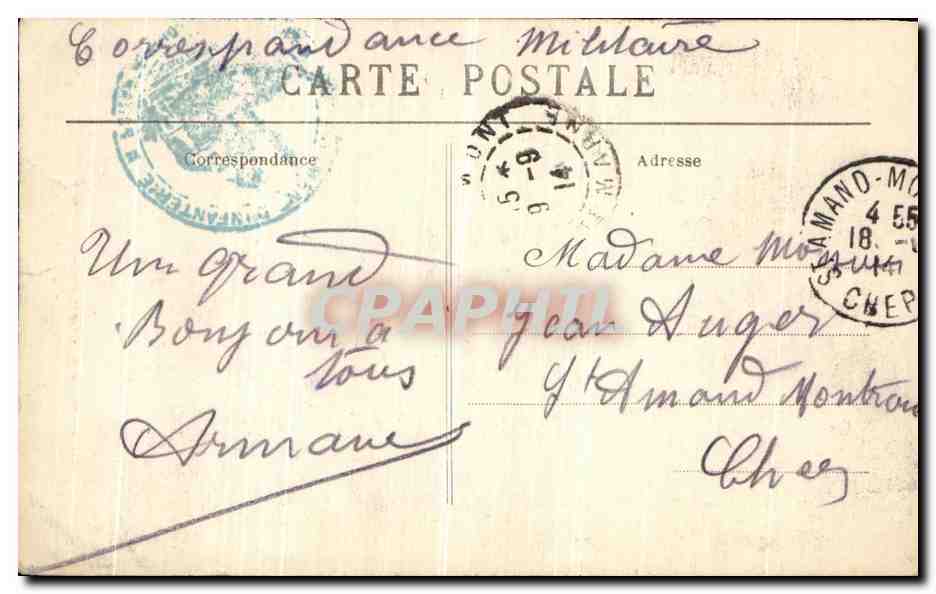 Correspondance Militaire
CARTE POSTALE
Correspondance
Adresse
MARNE
9-9
14
ST AMAND-MO
4 55
18
14
CHER
D'INFANTERIE
Un grand
Bonjour à
tous
Armand
Madame
Jean Auger
St Amand Montron
Cher
CPAPHIL